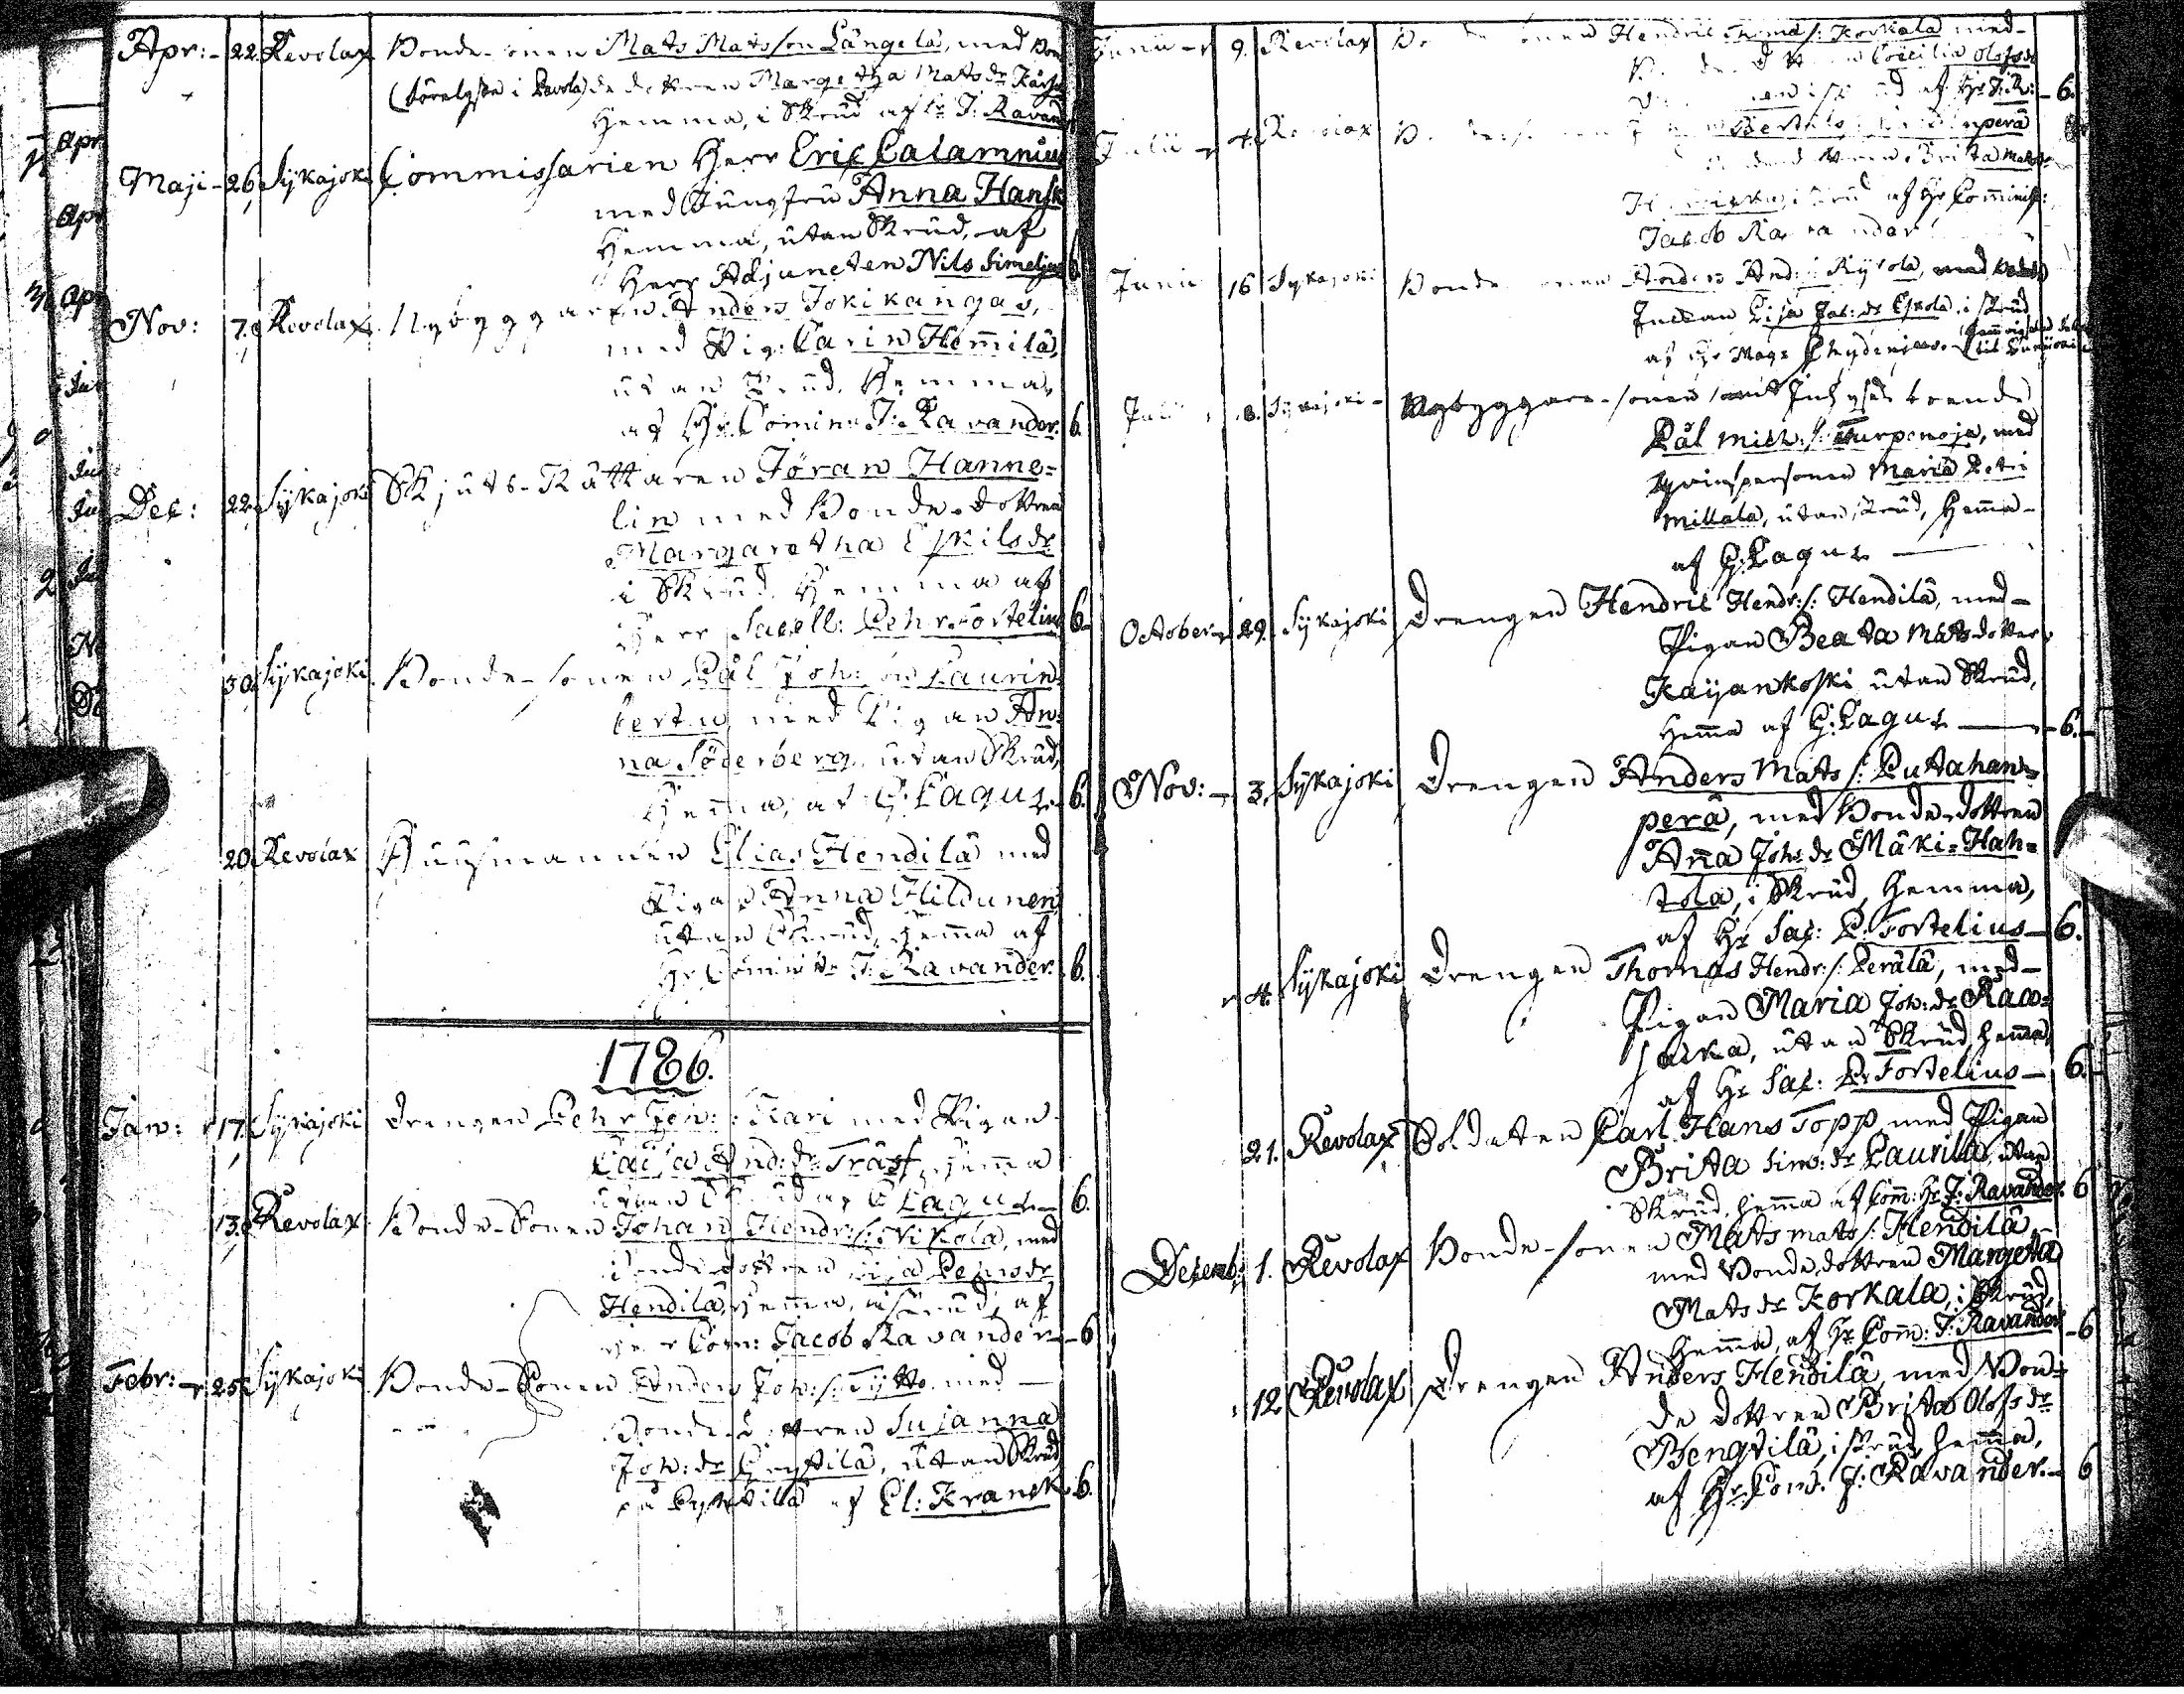 Apr: - 22. Revolax Bonde-sonen Mats Matsson Längelä, med Bon
(Förelyste i Pavola) de dottren Margetha Mats dr Kärsä
Hemma, i Skrud af Hr J: Ravand
Maji - 26. Sijkajoki Commissarien Herr Eric Calamnius
med Jungfru Anna Hansk
Hemma, utan Skrud, af
Herr Adjuncten Nils Simelius 6
Nov: 7. Revolax. Nybyggaren Anders Jokikangas,
med Pig: Carin Hemmilä,
utan Skrud, Hemma,
af Hr. Comin: J: Ravander. 6.
Dec: 22. Sijkajoki Skjuts-Rättaren Jöran Hanne=
lin med Bonde-dottren
Margaretha Eskils dr
i Skrud Hemma af
Herr Sacell: Pehr Fortelius 6.
30. Sijkajoki. Bonde-sonen Pål Joh: son Laurin
perttu, med Pigan An=
na Söderberg, utan Skrud,
Hemma, af G: Lagus 6.
20. Revolax Huusmannen Elias Hendilä med
Pigan Anna Hildunen
utan Skrud, Hemma af
Hr Cominist: J: Ravander. 6.
1786.
Jan: 17. Sijkajoki Drengen Pehr Joh: s: Kari med Pigan
Caisa And: dr Träsk, Hemma
utan Skrud af G Lagus 6.
13. Revolax. Bonde-Sonen Johan Hendr: s: Nikola, med
Bonde dottren Lisa Pehrs dr
Hendilä, Hemma, i Skrud, af
Herr Com: Jacob Ravander - 6
Febr: - 25. Sijkajoki Bonde-Sonen Anders Joh: s: Tytto med -
Bonde dottren Susanna
Joh: dr Pryttilä, utan Skrud
på Pryttilä af El: Kranck. 6.
Junii - 9. Revolax Hendric Thomas s: Korkala med -
Cecilia Olofsdr
af Hr J: R: - 6.
Julii - 4. Revolax perä
Brita Mats dr
i Skrud af Hr Comminist:
Jacob Ravander
Junii 16 Sijkajoki Bonde sonen Anders And: s: Ryhola, med
Enckan Lisa Jac: dr Eskola, i Skrud
af Hr Mag: Chydenius.
8. Sijkajoki - Nybyggare-sonen samt Inhyses boende
Pål Mich: s: Turpenoja, med
Qvinspersonen Maria Petri
Millala, utan skrud, Hemma -
af G: Lagus
October - 29. Sijkajoki Drengen Hendric Hendr: s: Hendilä, med -
Pigan Beata Mats dotter
Kaijankoski utan Skrud,
Hemma af G: Lagus - 6.
Nov: - 3. Sijkajoki Drengen Anders Mats s: Luttahan=
perä, med Bonde-dottren
Anna Joh: dr Mäki-Hah=
tola, i Skrud, Hemma,
af Hr Sac: P. Fortelius - 6.
4. Sijkajoki Drengen Thomas Hendr: s: Perälä, med -
Pigan Maria Joh: dr Raa=
saka, utan Skrud, Hemma,
af Hr Sac: P. Fortelius - 6.
21. Revolax Soldatten Carl Hans Topp, med Pigan
Brita Sim: dr Laurila, utan
Skrud, hemma af Com: Hr J: Ravander 6
Decemb: 1. Revolax Bonde-sonen Mats Mats s: Hendilä
med Bonde dottren Margeta
Mats dr Korkala, i Skrud,
Hemma, af Hr Com: J: Ravander - 6
12 Revolax Drengen Anders Hendilä, med Bon=
de dottren Brita Olofs dr
Bengtilä, i skrud, hemma,
af Hr Com: J: Ravander. 6